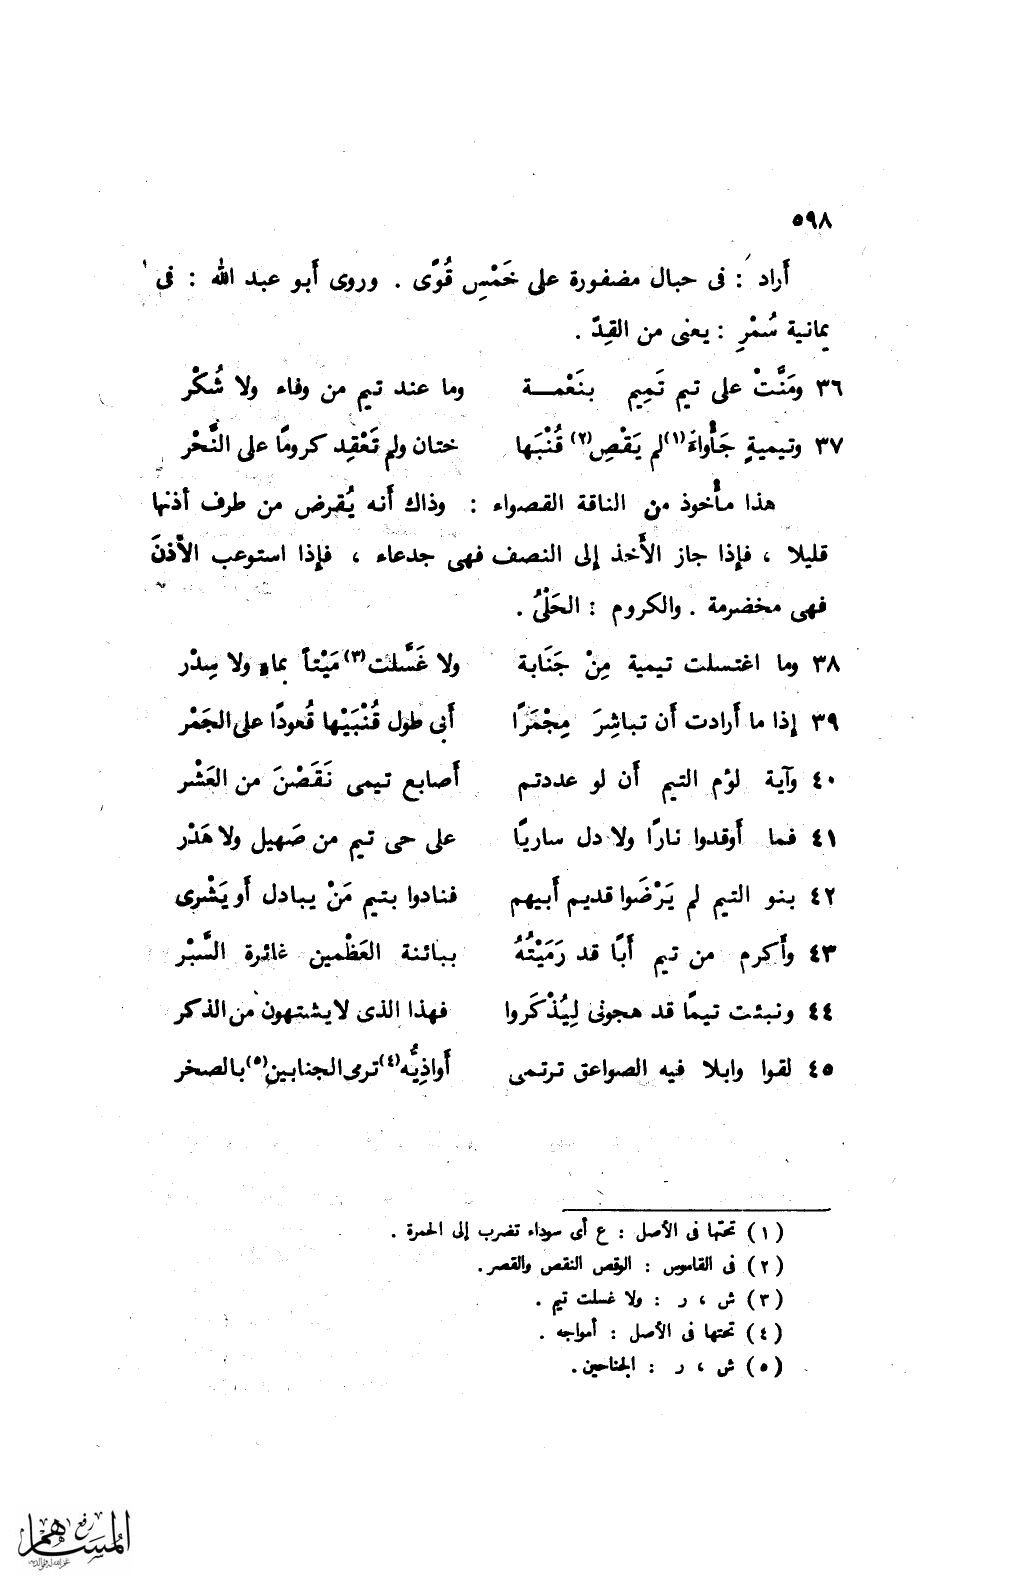 ٥٩٨
أَراد : فى حبال مضفورة على خَمْسِ قُوًى . وروى أَبو عبد الله : فى
يمانية سُمْرِ : يعنى من القِدّ .
٣٦ ومَنَّتْ على تيم تَمِيم بنَعْمـــة وما عند تيم من وفاء ولا شُكْر
٣٧ وتيميةٍ جَأْواءَ(١) لم يَقْصِ(٢) قُنْبَها ختان ولم تَعْقِد كرومًا على النَّحْر
هذا مأْخوذ من الناقة القصواء : وذاك أَنه يُقرض من طرف أذنها
قليلا ، فإذا جاز الأَخذ إلى النصف فهى جدعاء ، فإذا استوعب الأُذنَ
فهى مخضرمة . والكروم : الحَلْىُ .
٣٨ وما اغتسلت تيمية مِنْ جَنَابة ولا غَسَّلت(٣) مَيْتاً بماءٍ ولا سِدْر
٣٩ إذا ما أَرادت أَن تباشِرَ مِجْمَرًا أَبى طول قُنْبَيْها قُعودًا على الجَمْر
٤٠ وآية لؤم التيم أَن لو عددتم أَصابع تيمى نَقَصْنَ من العَشْر
٤١ فما أَوقدوا نارًا ولا دل ساريًا على حى تيم من صَهيل ولا هَدْر
٤٢ بنو التيم لم يَرْضَوا قديم أَبيهم فنادوا بتيم مَنْ يبادل أَو يَشْرِى
٤٣ وأَكرم من تيم أَبًا قد رَمَيْتُهُ ببائنة العَظْمين غائرة السَّبْر
٤٤ ونبئت تيمًا قد هجونى لِيُذْكَروا فهذا الذى لا يشتهون من الذكر
٤٥ لقوا وابلا فيه الصواعق ترتمى أَواذِيُّه(٤) ترى الجنابين(٥) بالصخر
(١) تحتها فى الأصل : ع أى سوداء تضرب إلى الحمرة .
(٢) فى القاموس : الوقص النقص والقصر .
(٣) ش ، ر : ولا غسلت تيم .
(٤) تحتها فى الأصل : أمواجه .
(٥) ش ، ر : الجناحين .
رفع
المساهم